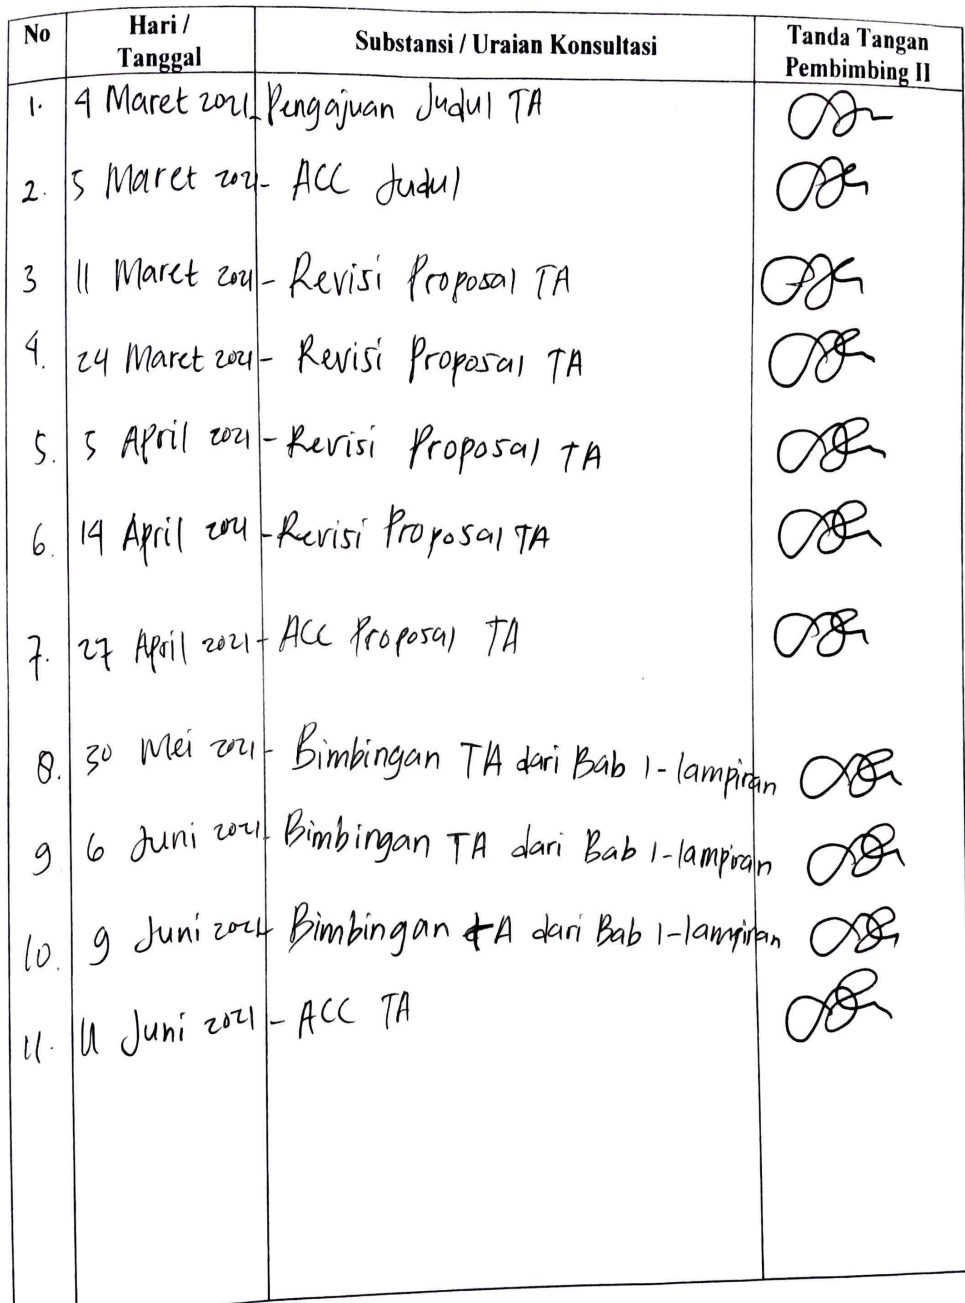 No Hari / Tanggal Substansi / Uraian Konsultasi Tanda Tangan Pembimbing II
1. 4 Maret 2021 - Pengajuan Judul TA
2. 5 Maret 2021 - ACC Judul
3 11 Maret 2021 - Revisi Proposal TA
4. 24 Maret 2021 - Revisi Proposal TA
5. 5 April 2021 - Revisi Proposal TA
6. 14 April 2021 - Revisi Proposal TA
7. 27 April 2021 - ACC Proposal TA
8. 30 Mei 2021 - Bimbingan TA dari Bab 1 - lampiran
9 6 Juni 2021 - Bimbingan TA dari Bab 1 - lampiran
10. 9 Juni 2021 - Bimbingan TA dari Bab 1 - lampiran
11. 11 Juni 2021 - ACC TA